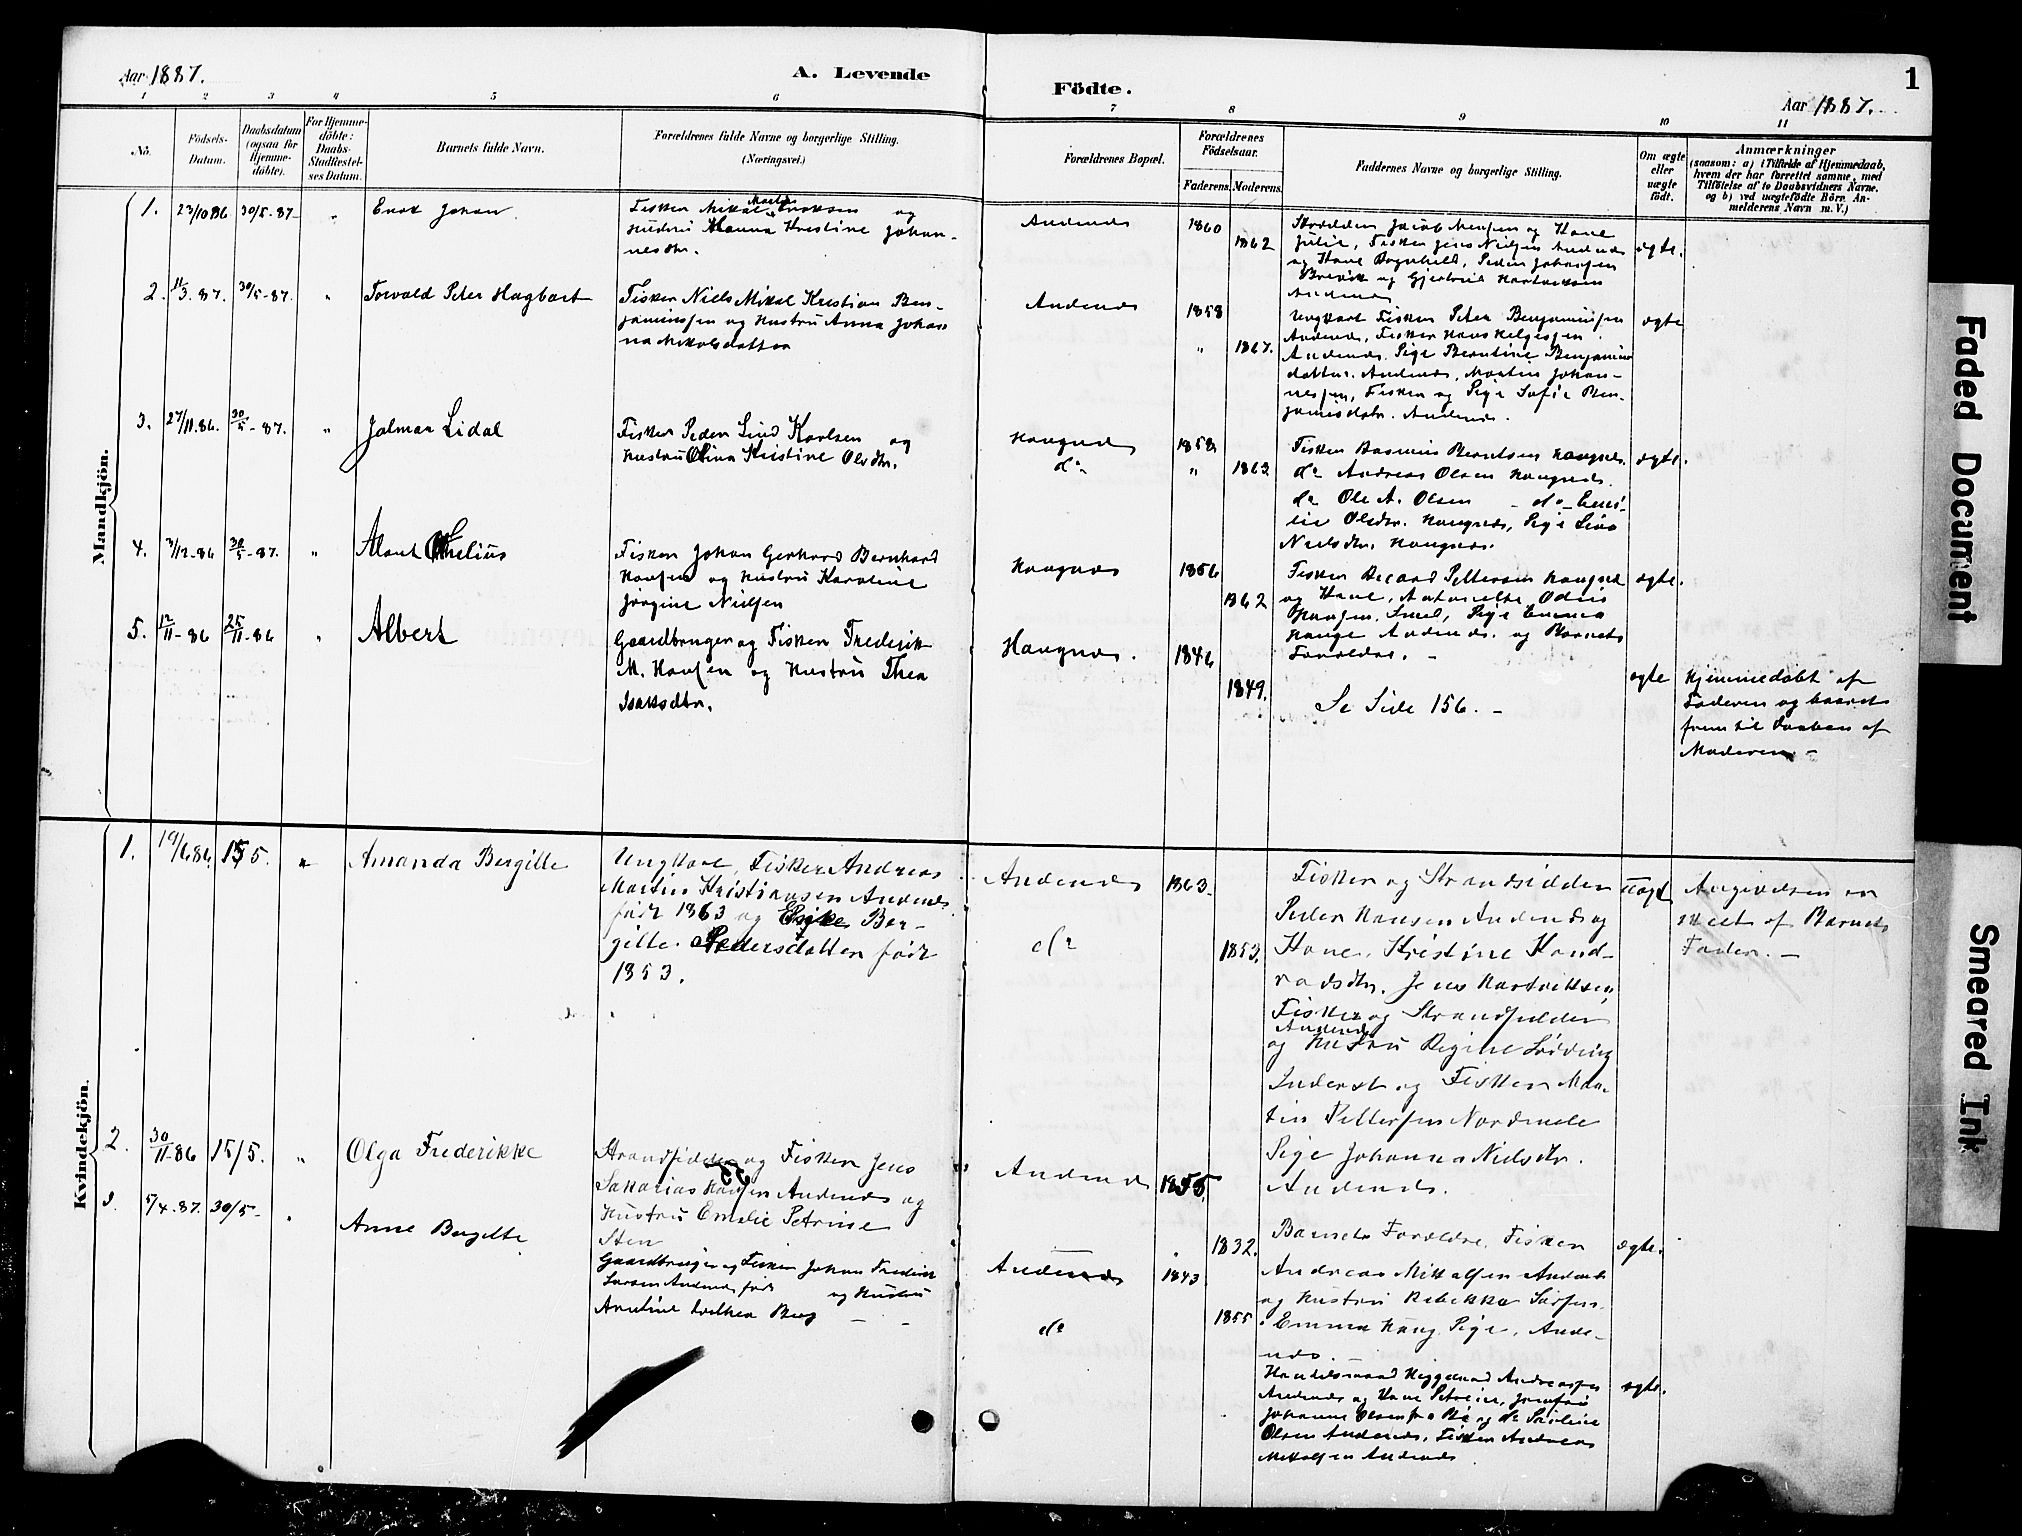 Aar 1887.
A. Levende
Födte.
1
Aar 1887.
1 2 3 4 5 6 7 8 9 10 11
No.
Födsels-
Datum.
Daabsdatum
(ogsaa for
Hjemme-
döbte).
For Hjemme-
döbte:
Daabs-
Stadfæstel-
ses Datum.
Barnets fulde Navn.
Forældrenes fulde Navne og borgerlige Stilling.
(Næringsvei.)
Forældrenes Bopæl.
Forældrenes
Födselsaar.
Faderens. Moderens.
Faddernes Navne og borgerlige Stilling.
Om ægte
eller
uægte
födt.
Anmærkninger
(saasom: a) i Tilfælde af Hjemmedaab,
hvem der har forrettet samme, med
Tilföielse af to Daabsvidners Navne.
og b) ved uægtefödte Börn An-
melderens Navn m. V.)
Mandkjön.
1. 23/10 86 30/5-87 " Enok Johan.
Fisker Mikal Enoksen og
Hustru Hanna Kristine Johan-
nesdtr.
Andenes 1860
1862
Jacob Hansen og Kone
Julie, Fisker Jens Nielsen Andenes
og Kone Ragnhild, Peder Johansen
Brevik og Gjertrud Hartviksen
Andenes
ægte.
2. 11/3.87. 30/5-87. " Torvald Peter Hagbart
Fisker Niels Mikal Kristian Ben-
jaminssen og Hustru Anna Johan
na Mikalsdatter
Andenes 1858
" 1867.
Ungkarl Fisker Peter Benjaminsen
Andenes, Fisker Hans Helgesen.
Andenes. Pige Berntine Benjamins
datter. Andenes, Martin Johan-
nesen, Fisker og Pige Sofie Ben-
jamisdatr. Andenes.
ægte
3. 27/11.86. 30/5-87. " Jalmar Lidal
Fisker Peder Lind Karlsen og
Hustru Olina Kristine Olsdtr.
Haugnes 1858
do " 1863
Fisker Rasmus Berntsen Haugnes.
do Andreas Olsen Haugnes.
do Ole A. Olsen - do - Emi-
lie Olsdtr. Haugnes, Pige Lina
Nielsdtr. Haugnes.
ægte.
4. 3/12-86 30/5-87. "
Fisker Johan Gerhard Bernhard
Hansen og Hustru Karoline
Jørgine Nielsen
Haugnes 1856
1862
Fisker Rikard Pettersen Haugnes
og Kone, Antonette Odine
Hansen. Pige Emma
Hauge Andenes. og Barnets
Forældre. -
ægte.
5. 12/11-86 25/11-86 " Albert
Gaardbruger og Fisker Frederik
M. Hansen og Hustru Thea
Isaksdtr.
Haugnes. 1846
1849.
Se Side 156. -
ægte
Hjemmedøbt af
Faderen og baaret
frem til Daaben af
Moderen -
Kvindekjön.
1. 19/6 86 15/5. " Amanda Bergitte
Ungkarl, Fisker Andreas
Martin Kristiansen Andenes
født 1863 og Pige Ber-
gitte Pedersdatter født
1853.
Andenes 1863.
do 1853.
Fisker og Strandsidder
Peder Hansen Andenes og
Kone, Kristine Kond-
radsdtr. Jens Hartviksen
Fisker og Strandsidder
Andenes
og Hustru Regine
og Fisker Mar-
tin Pettersen Nordmele
Pige Johanna Nielsdtr.
Andenes.
uægt
Angivelsen er
skeet af Barnets
Fader. -
2. 30/11-86 15/5. " Olga Frederikke
Strandsidder og Fisker Jens
Sakarias Hansen Andenes og
Hustru Emelie Petrine
Sten
Andenes 1855.
1832.
Barnets Forældre, Fisker
Andreas Mikkalsen Andenes
og Hustru Rebekka
Emma Haug Pige, Ande-
nes. -
ægte.
3. 5/4.87. 30/5- " Anne Bergitte
Gaardbruger og Fisker Johan Fredrik
Larsen Andenes født og Hustru
Berg - -
Andenes 1843
do 1855
Handelsmand Andreassen
Andenes og Kone Petrine,
Johanne Olsen fra Bø og do
Olsen Andenes, Fisker Andreas
Mikkalsen Andenes
ægte.
Faded Document
Smeared Ink